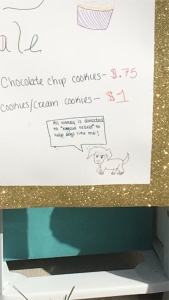 ale
Chocolate chip cookies- $.75
cookies/cream cookies- $1
All money is donated
to "
to
help dogs like me!